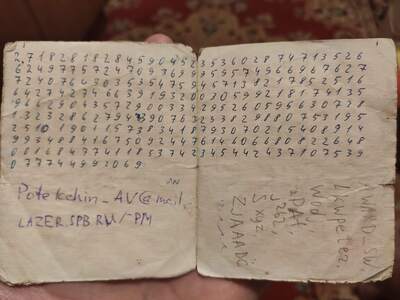 2,7182818284590452353602874713526
62497757247093699959574966967627
72407663035354759457138217852516
64274274663919320030599218174135
96629043572900334295260595630738
132328627943490763233829880753195
25101901157383418793070215408914
99348841675092447614606680822648
00168477411853742345442437107539
077744992069
Potekchin_AV@mail
LAZER.SPB.RU/~PM
Wod
Sxyz